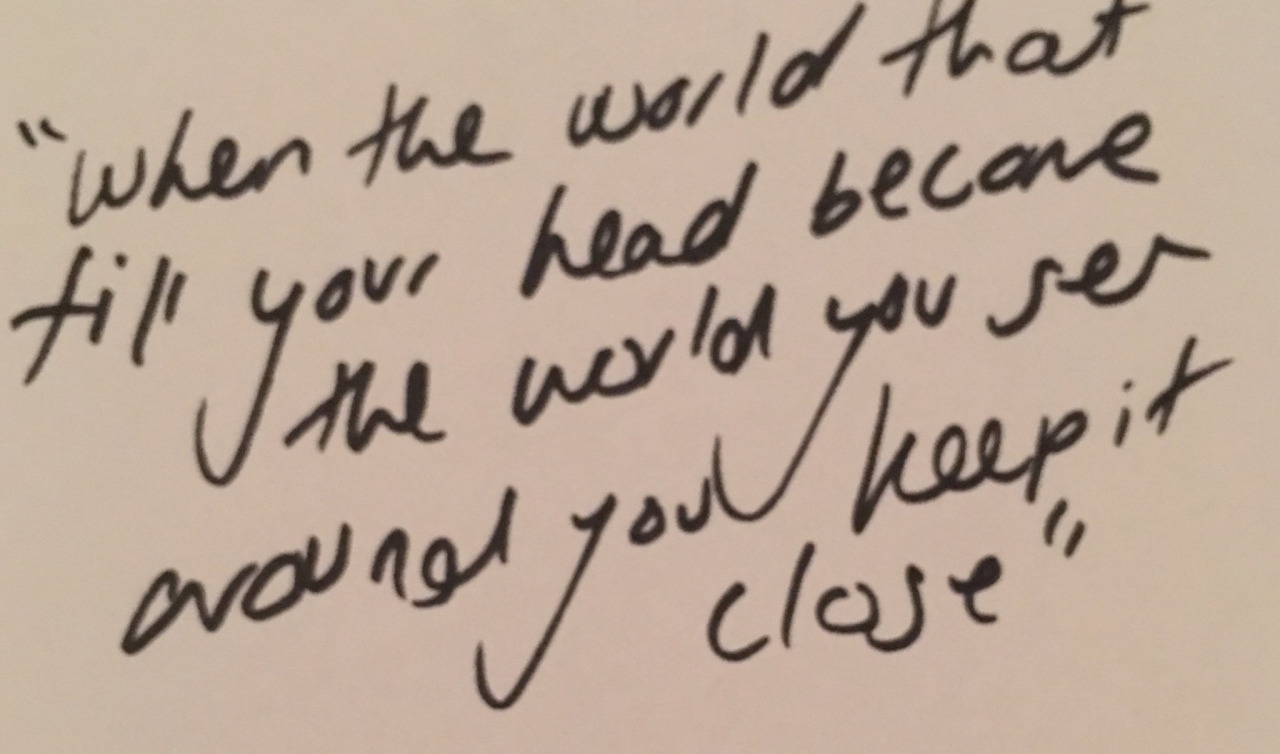 "when the world that
fill your head became
the world you see
around you keep it
close"